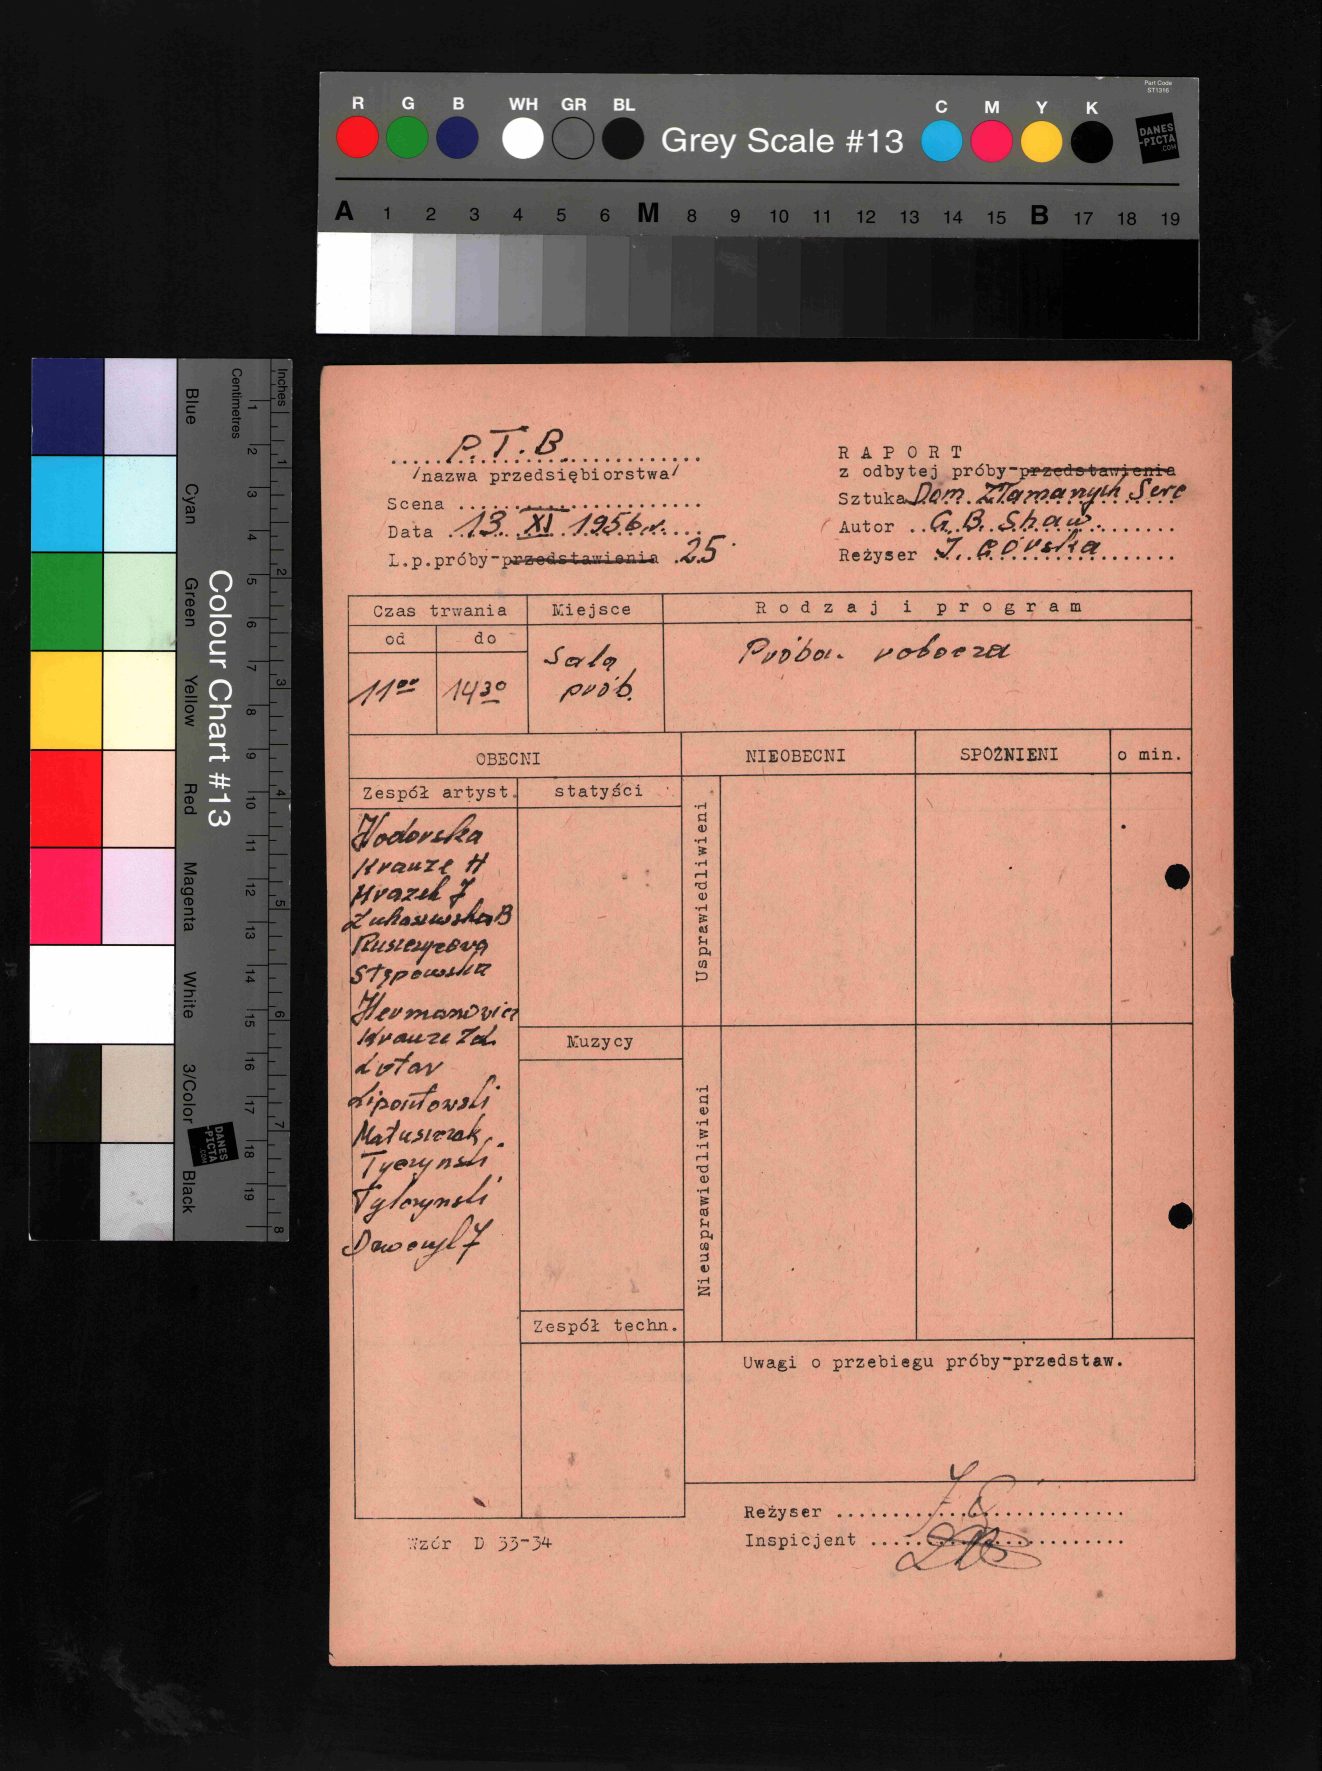 Part Code
ST1316
R G B WH GR BL C M Y K
Grey Scale #13
DANES
-PICTA
.COM
A 1 2 3 4 5 6 M 8 9 10 11 12 13 14 15 B 17 18 19
Colour Chart #13
Blue Cyan Green Yellow Red Magenta White 3/Color Black
Centimetres
1 2 3 4 5 6 7 8 9 10 11 12 13 14 15 16 17 18 19
Inches
1 2 3 4 5 6 7 8
DANES
-PICTA
.COM
P.T.B.
/nazwa przedsiębiorstwa/
Scena
Data 13. XI 1956 r.
L.p.próby-przedstawienia 25
RAPORT
z odbytej próby-przedstawienia
Sztuka Dom Złamanych Serc
Autor G. B. Shaw.
Reżyser I. Górska
Czas trwania Miejsce Rodzaj i program
od do
11⁰⁰ 14³⁰
Sala
prób.
Próba. robocza
OBECNI NIEOBECNI SPÓŹNIENI o min.
Zespół artyst. statyści
Usprawiedliwieni
Wodorska
Krauze H
Mrazek J
Łukaszewska B
Stępowska
Hermanowicz
Krauze Zd.
Lotar
Lipontowski
Matuszczak
Tyczyński
Tylczyński
Muzycy
Nieusprawiedliwieni
Zespół techn.
Uwagi o przebiegu próby-przedstaw.
Reżyser
Inspicjent
Wzór D 33-34